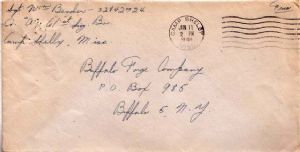 Sgt Wm Bender - 32142924
Co. "A"
Camp Shelby, Miss
CAMP SHELBY
JUN 11
2 PM
Free
Buffalo Forge Company
P.O Box 985
Buffalo 5 N.Y.